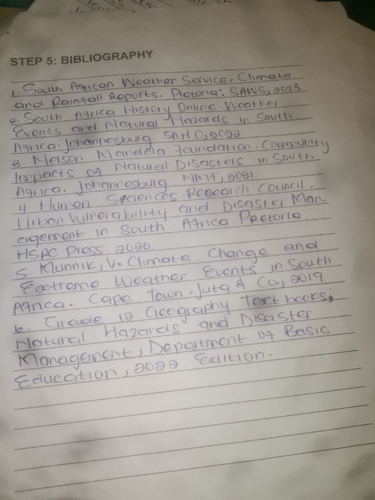 STEP 5: BIBLIOGRAPHY
1. South African Weather Service. Climate
and Rainfall Reports. Pictoria: SAWS, 2023
2. South Africa History Online. Weather
Events and Natural Hazards in South
Africa. Johannesburg. SAHO, 2022
3. Nelson Mandela Foundation. Community
Impacts of Natural Disasters in South
Africa. Johannesburg. NMF, 2021
4. Human Sciences Research Council.
Urban Vulnerability and Disaster Man-
agement in South Africa. Pretoria
HSRC Press. 2020
5. Klunnik, V. Climate Change and
Extreme Weather Events in South
Africa. Cape Town. Juta & Co, 2019
6. Grade 12 Geography Textbooks;
Natural Hazards and Disaster
Management, Department of Basic
Education, 2022 Edition.